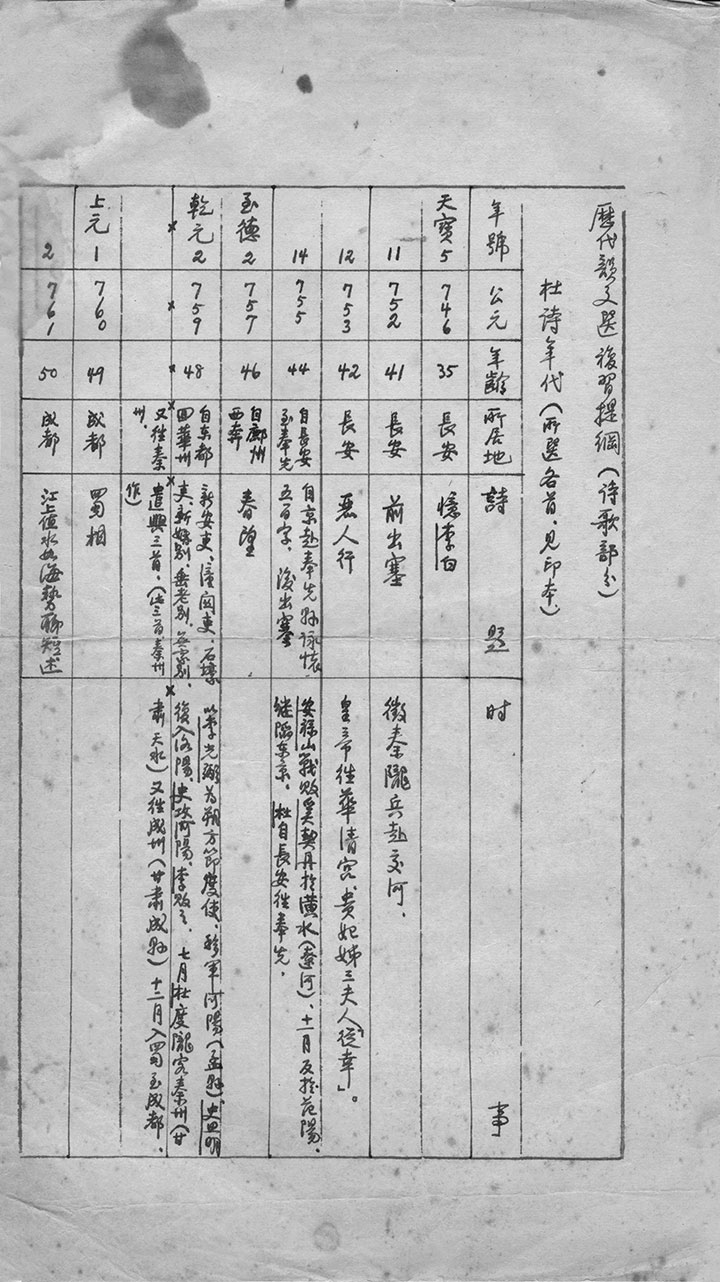 歷代韻文選複習提綱（诗歌部分）
杜詩年代（所選各首，見印本）
年號 公元 年齡 所居地 詩題 时事
天寶5 746 35 長安 憶李白
11 752 41 長安 前出塞 徵秦隴兵赴交河、
12 753 42 長安 麗人行 皇帝往華清宮，貴妃姊三夫人「從幸」。
14 755 44 自長安
至奉先 自京赴奉先縣詠懷
五百字，後出塞 安祿山戰敗奚契丹於潢水（遼河）、十一月反於范陽、
继陷东京，杜自長安往奉先，
至德2 757 46 自鄜州
西奔 春望
乾元2 759 48 自东都
回華州
又往秦
州、 新安吏、潼関吏、石壕
吏、新婚别、垂老别、無家别、
遣興三首，（此三首秦州
作） 以李光弼为朔方節度使，移軍河陽（孟縣）史思明
復入洛陽、史攻河陽、李敗之、七月杜度隴客秦州（甘
肅天水）又往成州（甘肅成縣）十二月入蜀至成都、
上元1 760 49 成都 蜀相
2 761 50 成都 江上值水如海勢聊短述